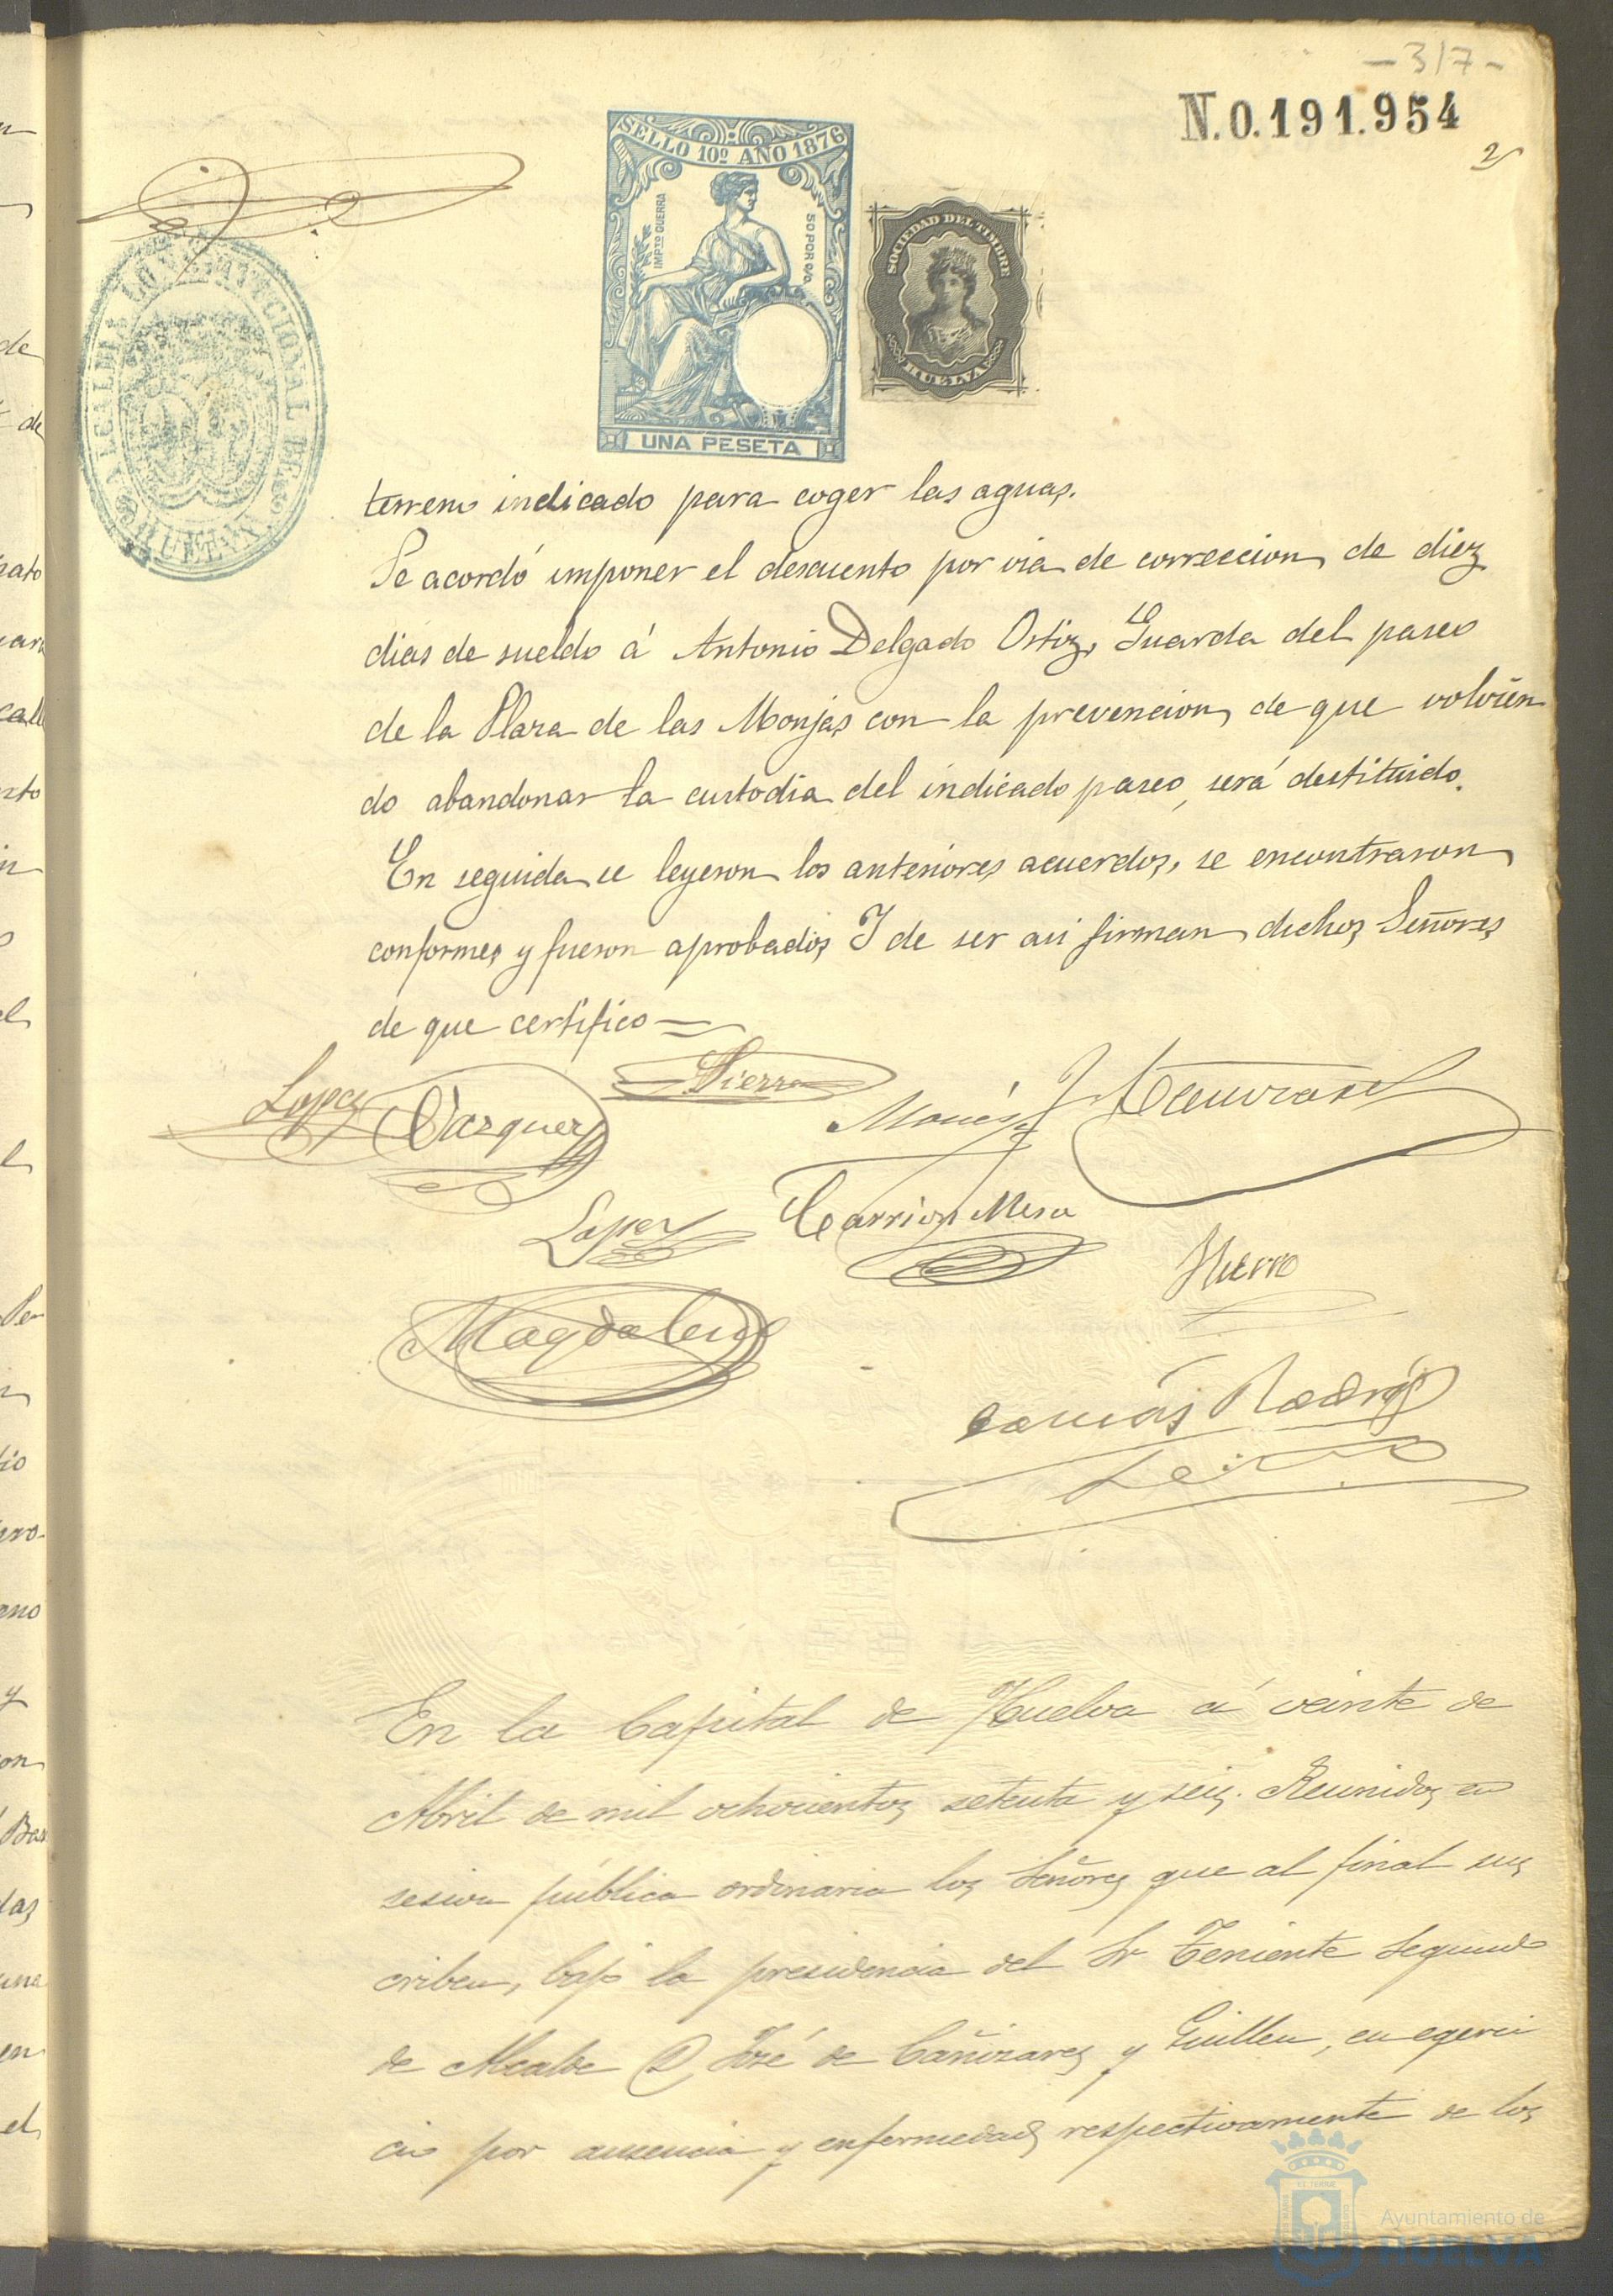 -317-
N.0.191.954
SELLO 10º AÑO 1876
IMPTO GUERRA
50 POR 0/0
UNA PESETA
SOCIEDAD DEL TIMBRE
HUELVA
ALCALDIA CONSTITUCIONAL DE
HUELVA
terreno indicado para coger las aguas.
Se acordó imponer el descuento por via de correccion de diez
dias de sueldo á Antonio Delgado Ortiz, Guarda del paseo
de la Plaza de las Monjas con la prevencion de que volvien
do abandonar la custodia del indicado paseo, será destituido.
En seguida se leyeron los anteriores acuerdos, se encontraron
conformes y fueron aprobados Y de ser asi firman dichos Señores
de que certifico=
Lopez Vazquez
Sierra
Lopez
Carrion Mesa
Hierro
Magdalena
Tomás Rodrig
En la Capital de Huelva á veinte de
Abril de mil ochocientos setenta y seis. Reunidos en
sesion pública ordinaria los Señores que al final sus
criben, bajo la presidencia del Sr Teniente Segundo
de Alcalde D José de Cañizares y Guillen, en egerci
cio por ausencia y enfermedad respectivamente de los
Ayuntamiento de
HUELVA